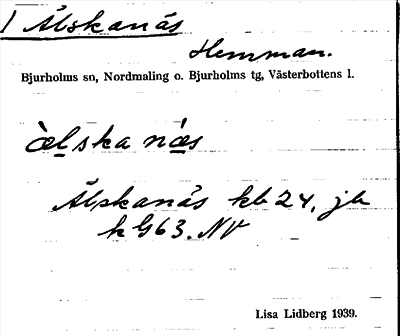 1 Älskanäs
Hemman.
Bjurholms sn, Nordmaling o. Bjurholms tg, Västerbottens l.
àlska näs
Älskanäs kb 24, jb
k G63. NV
Lisa Lidberg 1939.